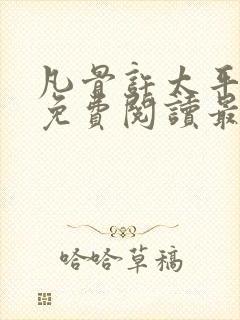 凡骨註太平
免費閱讀最
哈哈草稿